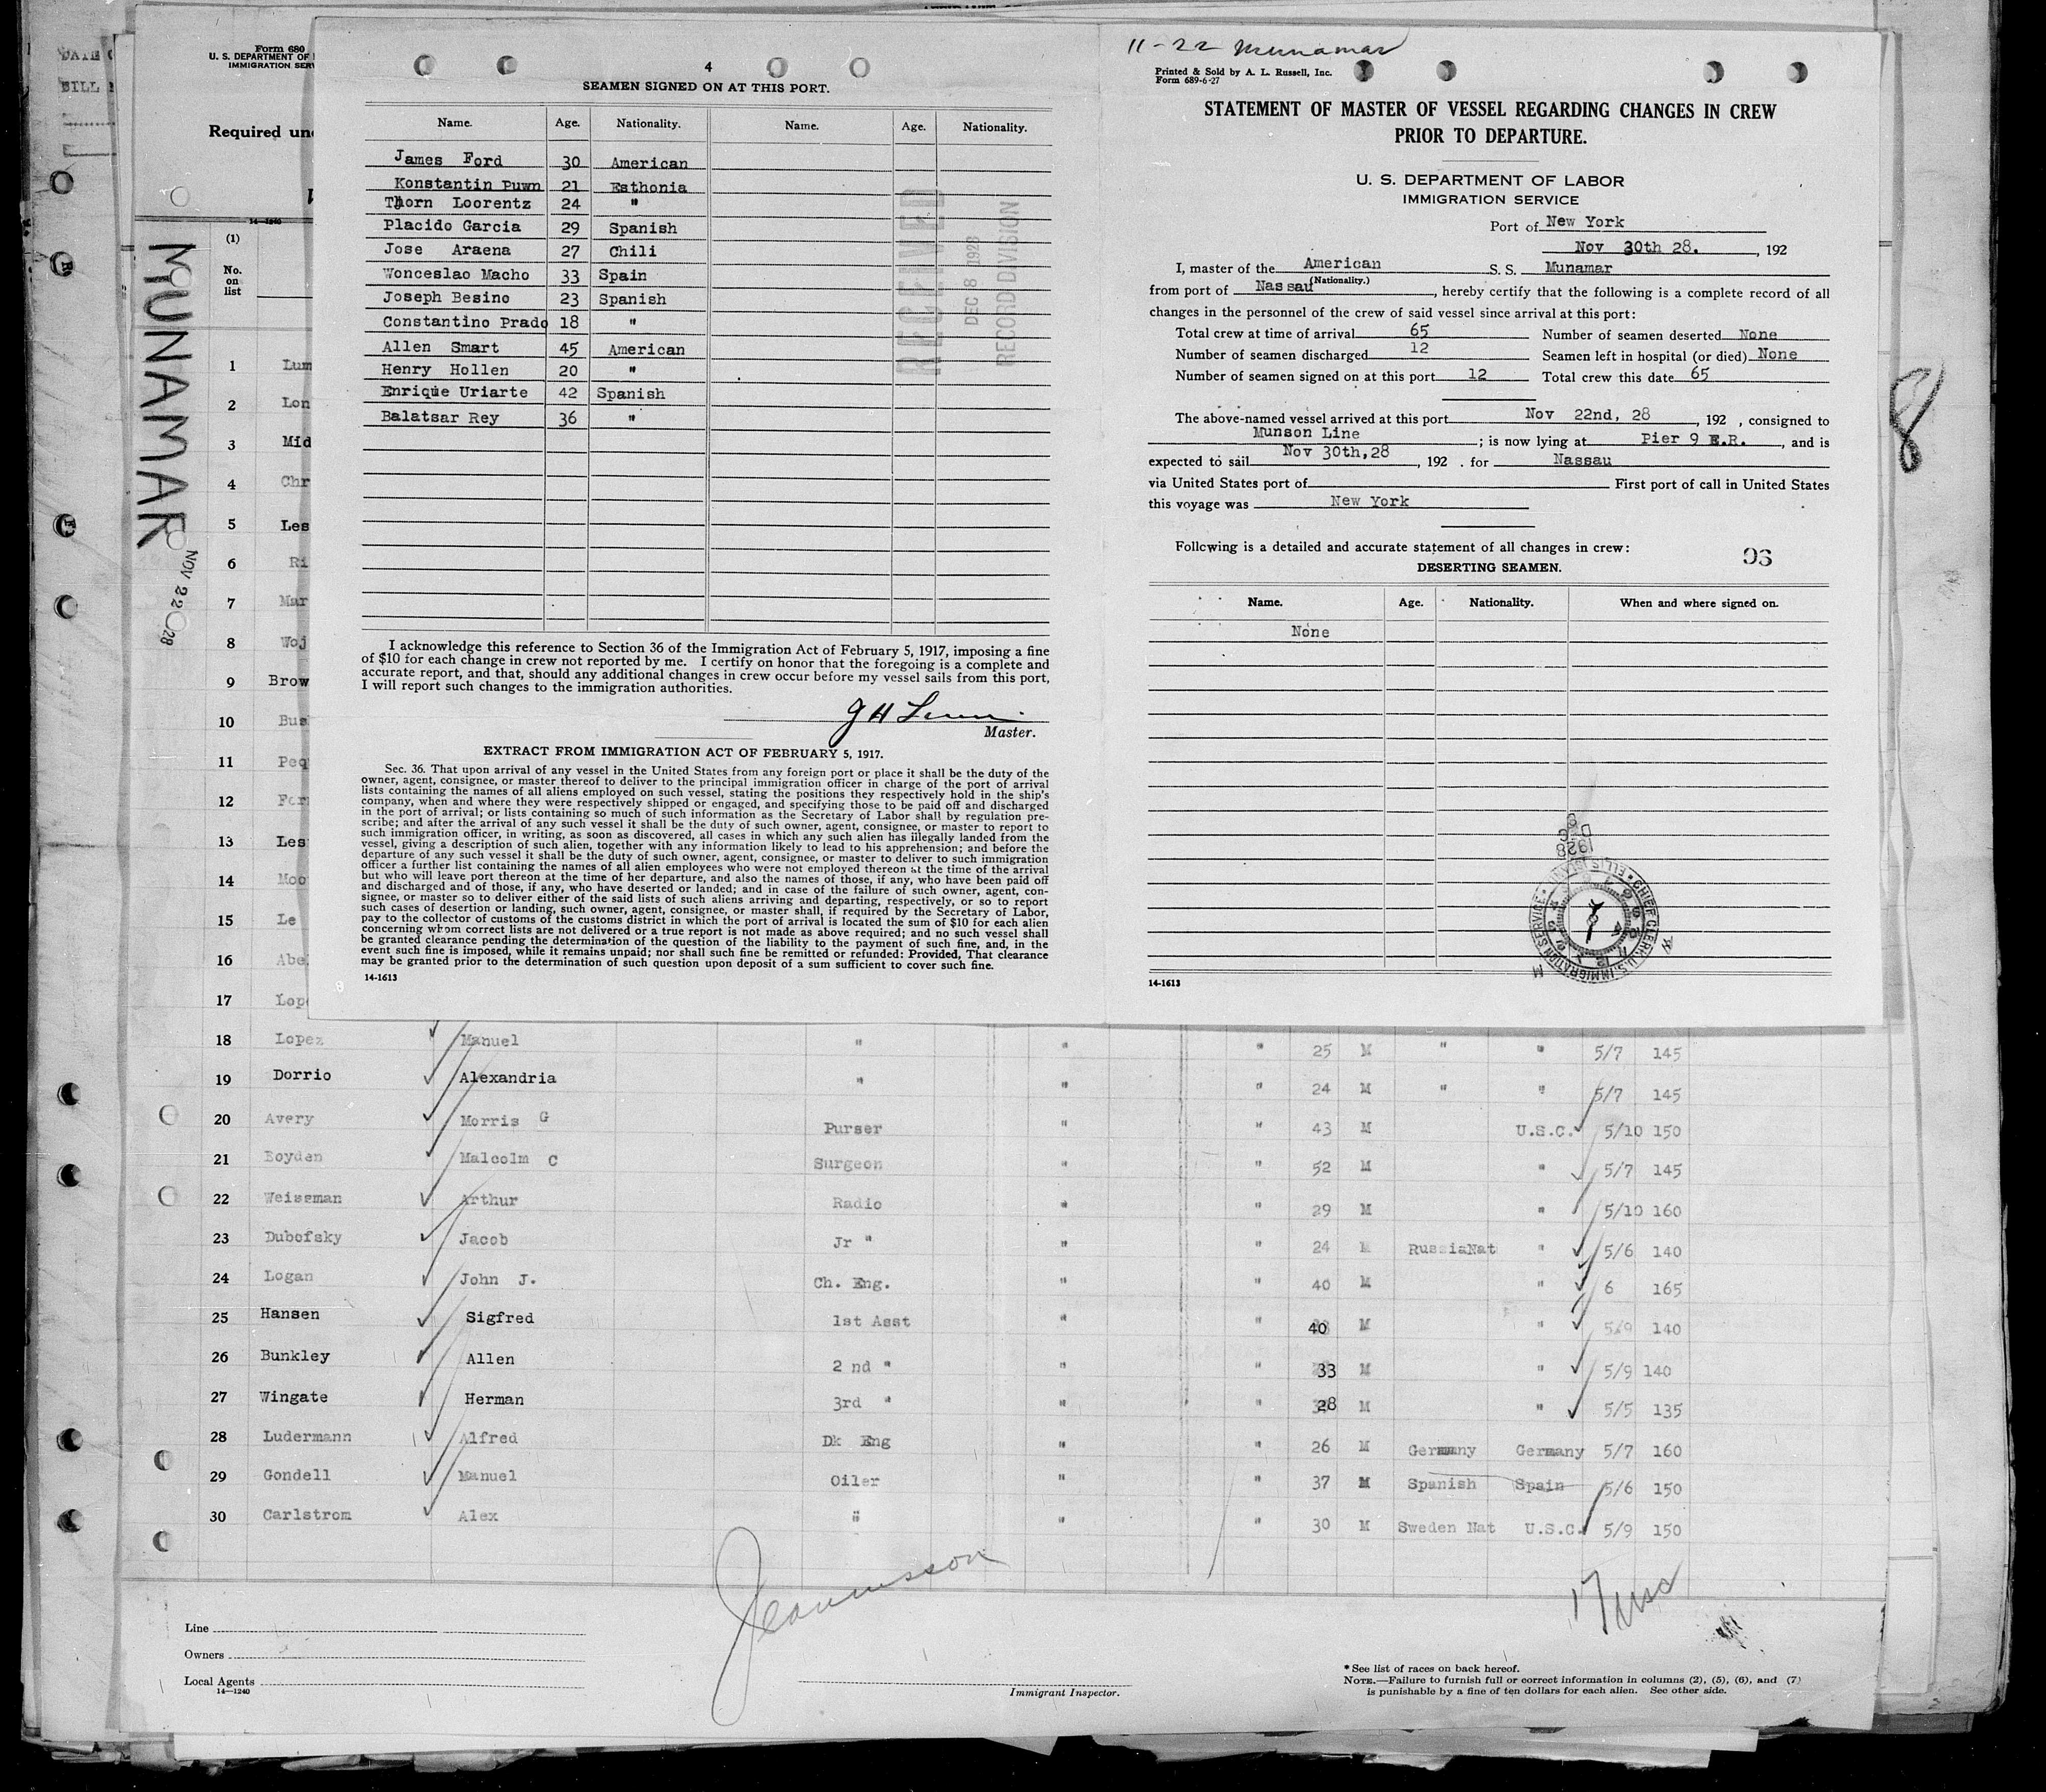 Form 680
U. S. DEPARTMENT OF
IMMIGRATION SERV
Required und
MUNAMAR
NOV 22 28
(1)
No.
on
list
1 Lum
2 Lon
3 Mid
4 Chr
5 Les
6 Ri
7 Mar
8 Woj
9 Brow
10 Bus
11 Peq
12 For
13 Les
14 Moo
15 Le
16 Abe
17 Lope
4
SEAMEN SIGNED ON AT THIS PORT.
Name. Age. Nationality. Name. Age. Nationality.
James Ford 30 American
Konstantin Puwn 21 Esthonia
Thorn Loorentz 24 "
Placido Garcia 29 Spanish
Jose Araena 27 Chili
Wonceslao Macho 33 Spain
Joseph Besino 23 Spanish
Constantino Prado 18 "
Allen Smart 45 American
Henry Hollen 20 "
Enrique Uriarte 42 Spanish
Balatsar Rey 36 "
RECEIVED
DEC 8 1928
RECORD DIVISION
I acknowledge this reference to Section 36 of the Immigration Act of February 5, 1917, imposing a fine
of $10 for each change in crew not reported by me. I certify on honor that the foregoing is a complete and
accurate report, and that, should any additional changes in crew occur before my vessel sails from this port,
I will report such changes to the immigration authorities.
Master.
EXTRACT FROM IMMIGRATION ACT OF FEBRUARY 5, 1917.
Sec. 36. That upon arrival of any vessel in the United States from any foreign port or place it shall be the duty of the
owner, agent, consignee, or master thereof to deliver to the principal immigration officer in charge of the port of arrival
lists containing the names of all aliens employed on such vessel, stating the positions they respectively hold in the ship's
company, when and where they were respectively shipped or engaged, and specifying those to be paid off and discharged
in the port of arrival; or lists containing so much of such information as the Secretary of Labor shall by regulation pre-
scribe; and after the arrival of any such vessel it shall be the duty of such owner, agent, consignee, or master to report to
such immigration officer, in writing, as soon as discovered, all cases in which any such alien has illegally landed from the
vessel, giving a description of such alien, together with any information likely to lead to his apprehension; and before the
departure of any such vessel it shall be the duty of such owner, agent, consignee, or master to deliver to such immigration
officer a further list containing the names of all alien employees who were not employed thereon at the time of the arrival
but who will leave port thereon at the time of her departure, and also the names of those, if any, who have been paid off
and discharged and of those, if any, who have deserted or landed; and in case of the failure of such owner, agent, con-
signee, or master so to deliver either of the said lists of such aliens arriving and departing, respectively, or so to report
such cases of desertion or landing, such owner, agent, consignee, or master shall, if required by the Secretary of Labor,
pay to the collector of customs of the customs district in which the port of arrival is located the sum of $10 for each alien
concerning whom correct lists are not delivered or a true report is not made as above required; and no such vessel shall
be granted clearance pending the determination of the question of the liability to the payment of such fine, and, in the
event such fine is imposed, while it remains unpaid; nor shall such fine be remitted or refunded: Provided, That clearance
may be granted prior to the determination of such question upon deposit of a sum sufficient to cover such fine.
14-1613
11-22 Munamar
Printed & Sold by A. L. Russell, Inc.
Form 689-6-27
STATEMENT OF MASTER OF VESSEL REGARDING CHANGES IN CREW
PRIOR TO DEPARTURE.
U. S. DEPARTMENT OF LABOR
IMMIGRATION SERVICE
Port of New York
Nov 30th 28. , 192
I, master of the American S. S. Munamar
(Nationality.)
from port of Nassau , hereby certify that the following is a complete record of all
changes in the personnel of the crew of said vessel since arrival at this port:
Total crew at time of arrival 65 Number of seamen deserted None
Number of seamen discharged 12 Seamen left in hospital (or died) None
Number of seamen signed on at this port 12 Total crew this date 65
The above-named vessel arrived at this port Nov 22nd, 28 , 192 , consigned to
Munson Line ; is now lying at Pier 9 E.R. , and is
expected to sail Nov 30th,28 , 192 . for Nassau
via United States port of First port of call in United States
this voyage was New York
Following is a detailed and accurate statement of all changes in crew:
96
DESERTING SEAMEN.
Name. Age. Nationality. When and where signed on.
None
DEC 1928
CHIEF CLERK U.S. IMMIGRATION SERVICE ELLIS ISLAND
14-1613
8
18 Lopez Manuel " " " 25 M " " 5/7 145
19 Dorrio Alexandria " " " 24 M " " 5/7 145
20 Avery Morris G Purser " " 43 M U.S.C. 5/10 150
21 Boyden Malcolm C Surgeon " " 52 M " 5/7 145
22 Weissman Arthur Radio " " 29 M " 5/10 160
23 Dubofsky Jacob Jr " " " 24 M RussiaNat " 5/6 140
24 Logan John J. Ch. Eng. " " 40 M " 6 165
25 Hansen Sigfred 1st Asst " " 40 M " 5/9 140
26 Bunkley Allen 2 nd " " " 33 M " 5/9 140
27 Wingate Herman 3rd " " " 28 M " 5/5 135
28 Ludermann Alfred Dk Eng " " 26 M Germany Germany 5/7 160
29 Gondell Manuel Oiler " " 37 M Spanish Spain 5/6 150
30 Carlstrom Alex " " " 30 M Sweden Nat U.S.C. 5/9 150
17 usc
Line
Owners
Local Agents
14—1240
Immigrant Inspector.
* See list of races on back hereof.
NOTE.—Failure to furnish full or correct information in columns (2), (5), (6), and (7)
is punishable by a fine of ten dollars for each alien. See other side.